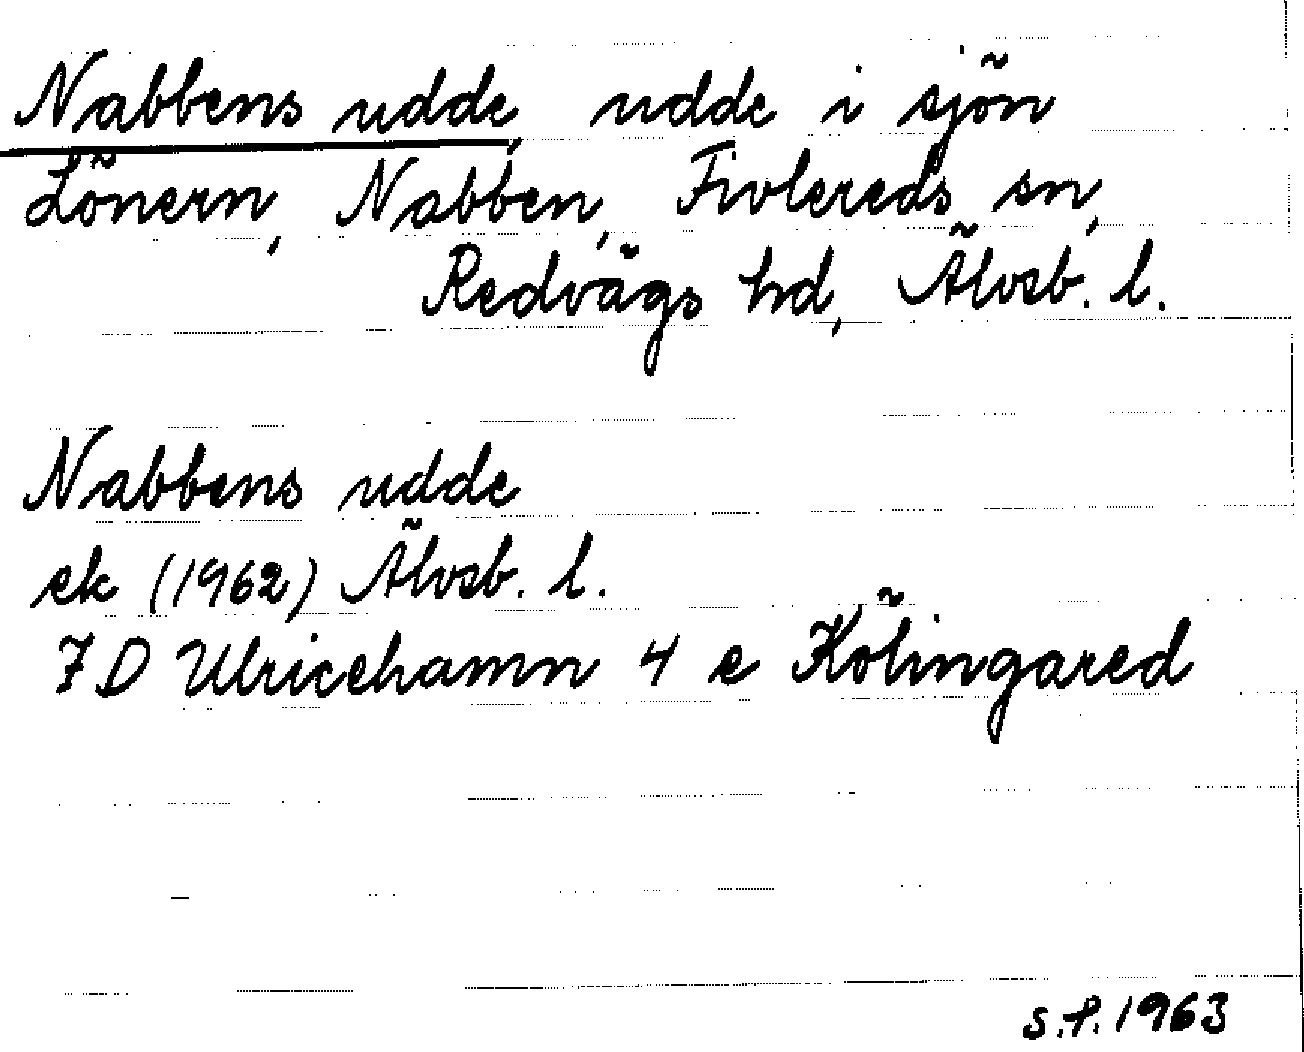 Nabbens udde, udde i sjön
Lönern, Nabben, Fivlereds sn,
Redvägs hd, Älvsb. l.
Nabbens udde
ek (1962) Älvsb. l.
7 D Ulricehamn 4 e Kölingared
S.P. 1963